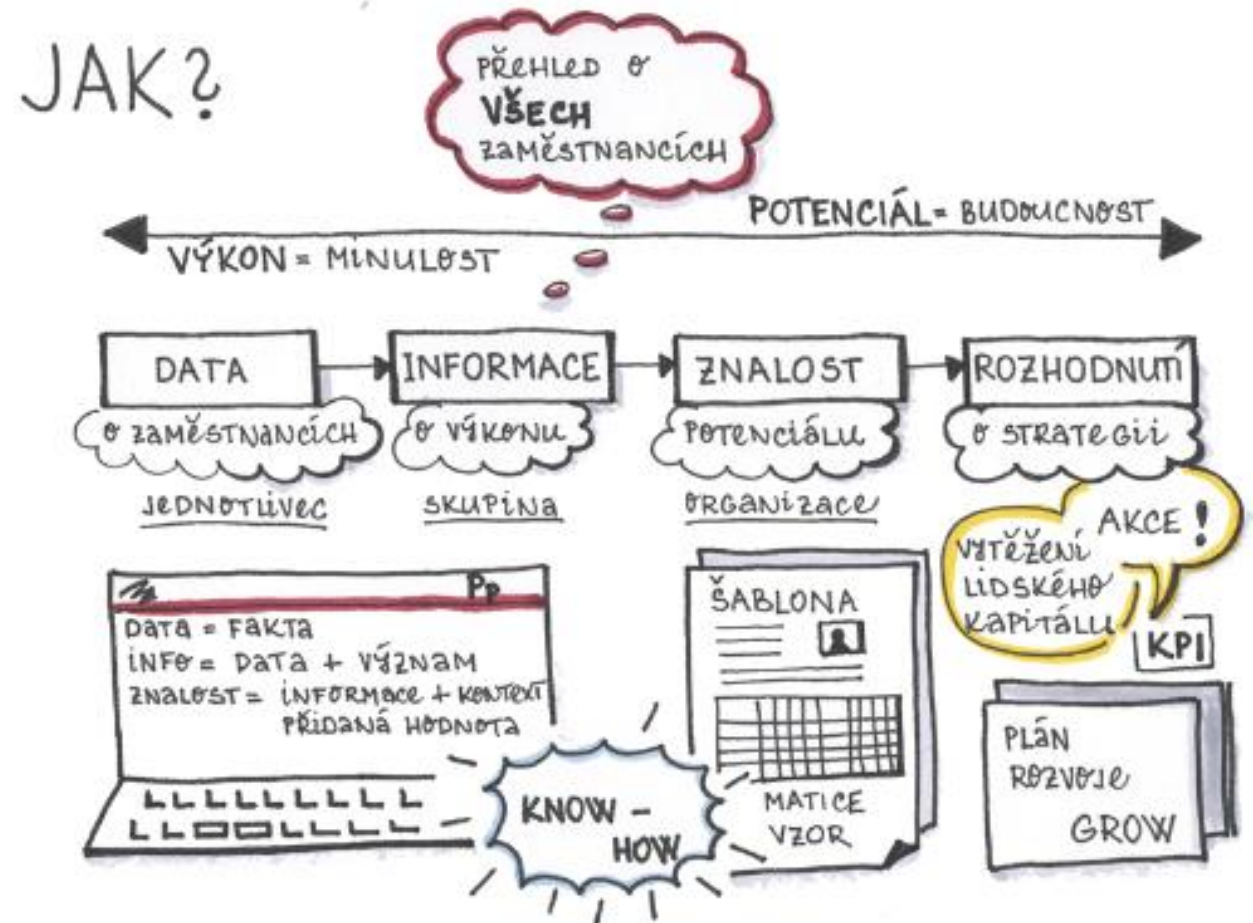 JAK?
PŘEHLED O
VŠECH
ZAMĚSTNANCÍCH
POTENCIÁL = BUDOUCNOST
VÝKON = MINULOST
DATA
INFORMACE
ZNALOST
ROZHODNUTÍ
O ZAMĚSTNANCÍCH
O VÝKONU
POTENCIÁLU
O STRATEGII
JEDNOTLIVEC
SKUPINA
ORGANIZACE
AKCE!
VYTĚŽENÍ
LIDSKÉHO
KAPITÁLU
KPI
Pp
DATA = FAKTA
INFO = DATA + VÝZNAM
ZNALOST = INFORMACE + KONTEXT
PŘIDANÁ HODNOTA
KNOW-
HOW
ŠABLONA
MATICE
VZOR
PLÁN
ROZVOJE
GROW